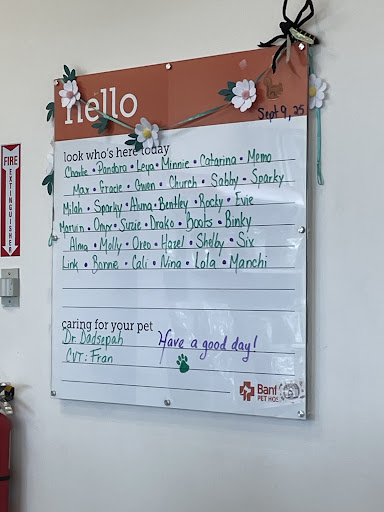 hello
Sept 9, 25
look who's here today
Charlie • Pandora • Leya • Minnie • Catarina • Memo
Max • Gracie • Gwen • Church • Sabby • Sparky
Milah • Sparky • Ahma • Bentley • Rocky • Evie
Marvin • Onyx • Suzie • Drako • Boots • Binky
Alma • Molly • Oreo • Hazel • Shelby • Six
Link • Bonne • Cali • Nina • Lola • Manchi
caring for your pet
Dr. Dadsepah
CVT: Fran
Have a good day!
PET
FIRE
EXTINGUISHER